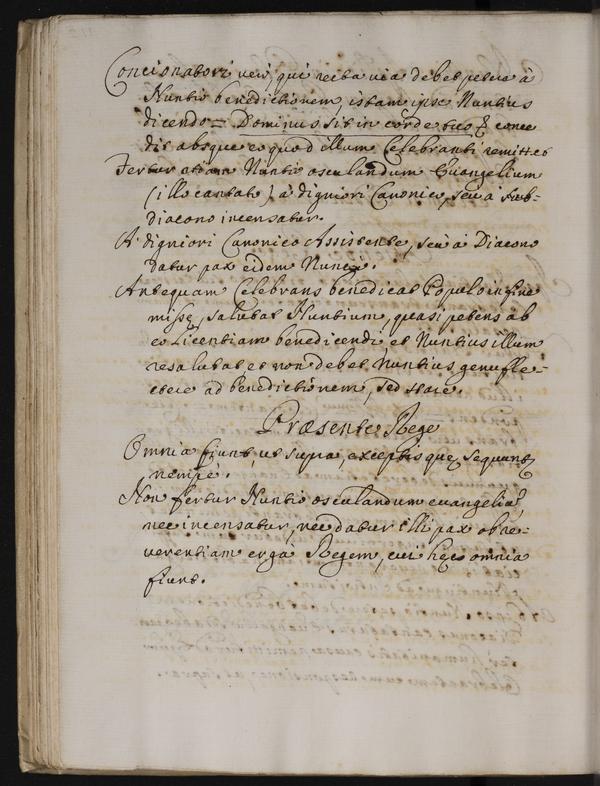 Concionatori verò, qui recta via debet petere à
Nuntio benedictionem, istam ipse Nuntius
dicendo = Dominus sit in corde tuo &c conce
dit absque eo quod illum Celebranti remittet
Fertur etiam Nuntio osculandum Evangelium
(illo cantato) à digniori Canonico, seu à sub-
diacono incensatur.
A' digniori Canonico Assistente, seu à Diacono
datur pax eidem Nuncio.
Antequam Celebrans benedicat Populo in fine
missę, salutat Nuntium, quasi petens ab
eo licentiam benedicendi et Nuntius illum
resalutat et non debet Nuntius genufle-
ctere ad benedictionem, sed stare.
Præsente Rege
Omnia fiunt, ut supra, exceptis quę sequuntʒ
nempè.
Non fertur Nuntio osculandum evangeliũ,
nec incensatur, nec datur illi pax ob re-
verentiam ergà Regem, cui hęc omnia
fiunt.